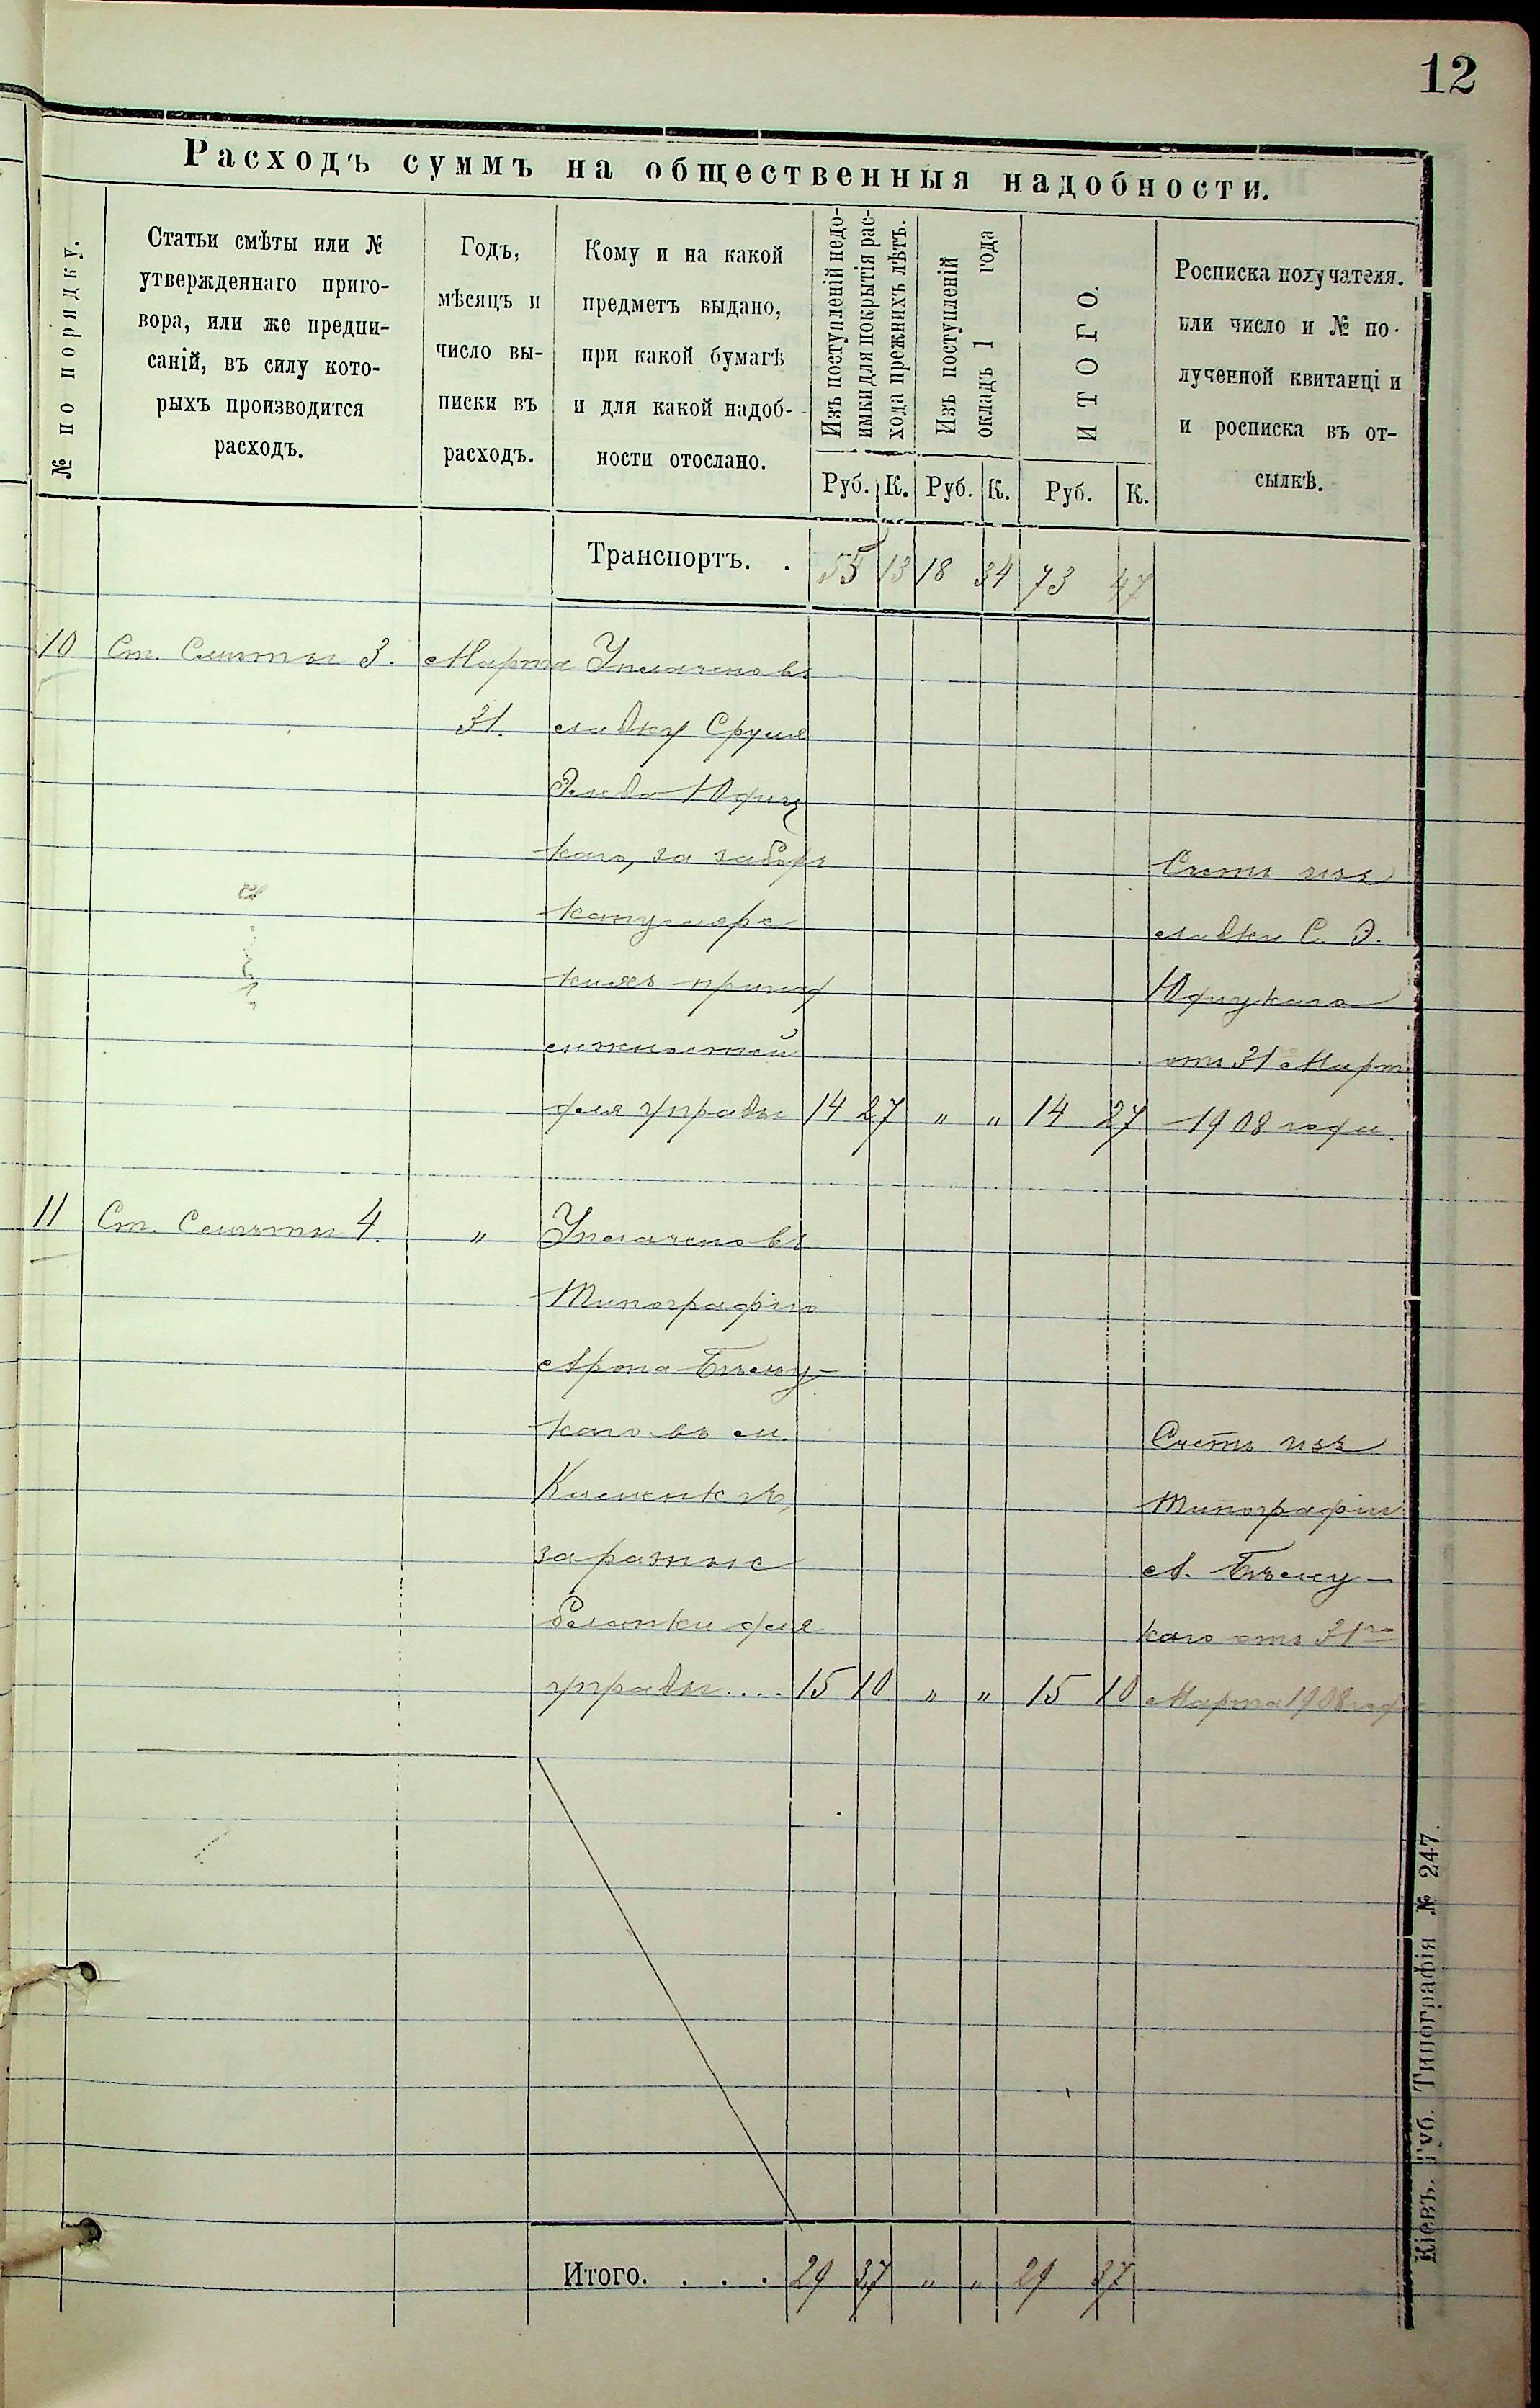 12
Расходъ суммъ на общественныя надобности.
№ по порядку.
Статьи смѣты или №
утвержденнаго приго-
вора, или же предпи-
саній, въ силу кото-
рыхъ производится
расходъ.
Годъ,
мѣсяцъ и
число вы-
писки въ
расходъ.
Кому и на какой
предметъ выдано,
при какой бумагѣ
и для какой надоб-
ности отослано.
Изъ поступленій недо-
имки для покрытія рас-
хода прежнихъ лѣтъ.
Изъ поступленій
окладъ 1 года
ИТОГО.
Росписка получателя.
или число и № по-
лученной квитанціи
и росписка въ от-
сылкѣ.
Руб. К. Руб. К. Руб. К.
Транспортъ. . 55 13 18 34 73 47
10 Ст. Смѣты 3. Марта Уплачено въ
31. лавку Сруля
Юфиц
каго, за заборъ
канцеляр
кихъ принад
лежностей
для управы 14 27 " " 14 27
Счетъ изъ
лавки С. Э.
Юфицкаго
отъ 31 Март
1908 года.
11 Ст. Смѣты 4. " Уплачено въ
Типографію
Арона Бѣлец-
каго въ м.
за разные
бланки для
управы.... 15 10 " " 15 10
Счетъ изъ
Типографіи
А. Бѣлец-
каго отъ 31го
Марта 1908 год
Итого. . . . 29 37 " " 29 37
Кіевъ. Губ. Типографія № 247.